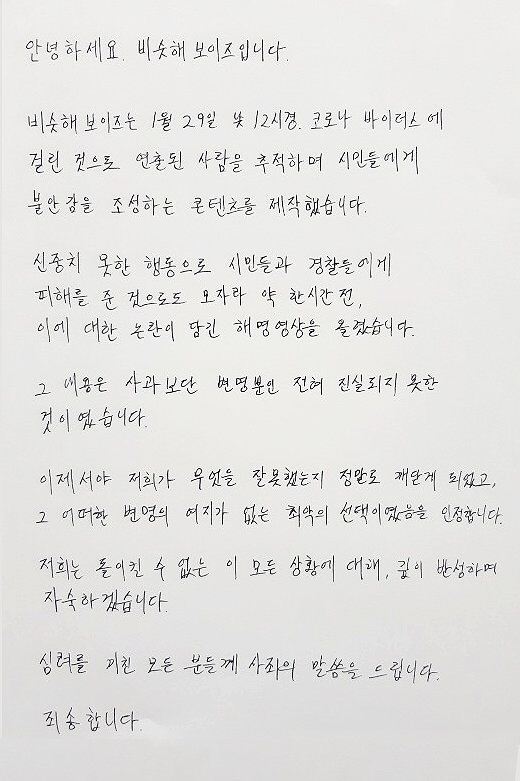 안녕하세요. 비슷해 보이즈입니다.
비슷해 보이즈는 1월 29일 낮 12시경. 코로나 바이러스에
걸린 것으로 연출된 사람을 추적하며 시민들에게
불안감을 조성하는 콘텐츠를 제작했습니다.
신중치 못한 행동으로 시민들과 경찰들에게
피해를 준 것으로도 모자라 약 한시간 전,
이에 대한 논란이 담긴 해명영상을 올렸습니다.
그 내용은 사과보단 변명뿐인 전혀 진실되지 못한
것이였습니다.
이제서야 저희가 무엇을 잘못했는지 정말로 깨닫게 되었고,
그 어떠한 변명의 여지가 없는 최악의 선택이였음을 인정합니다.
저희는 돌이킬 수 없는 이 모든 상황에 대해, 깊이 반성하며
자숙하겠습니다.
심려를 끼친 모든 분들께 사죄의 말씀을 드립니다.
죄송합니다.